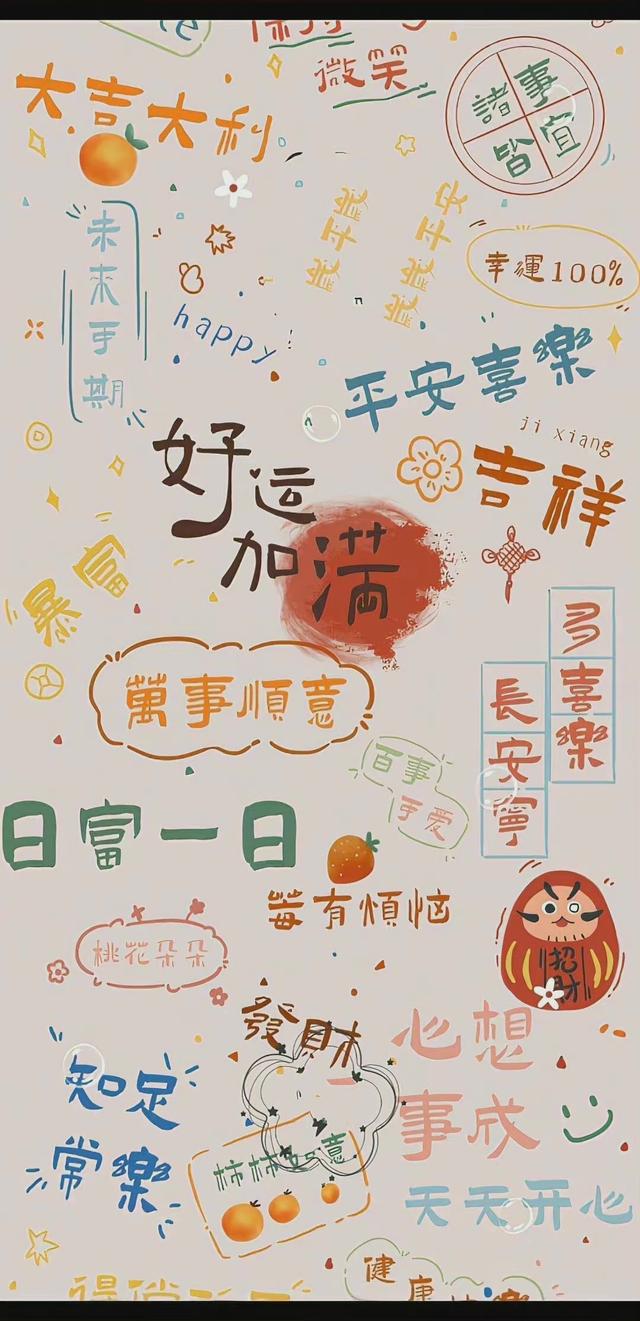 微笑
大吉大利
諸事皆宜
歲歲平安
未來可期
幸運100%
happy
平安喜樂
ji xiang
吉祥
好运
加满
暴富
多喜樂
長安寧
萬事順意
百事
可爱
日富一日
莓有煩惱
桃花朵朵
招財
發財
心想
事成
知足
常樂
柿柿如意
天天开心
健康